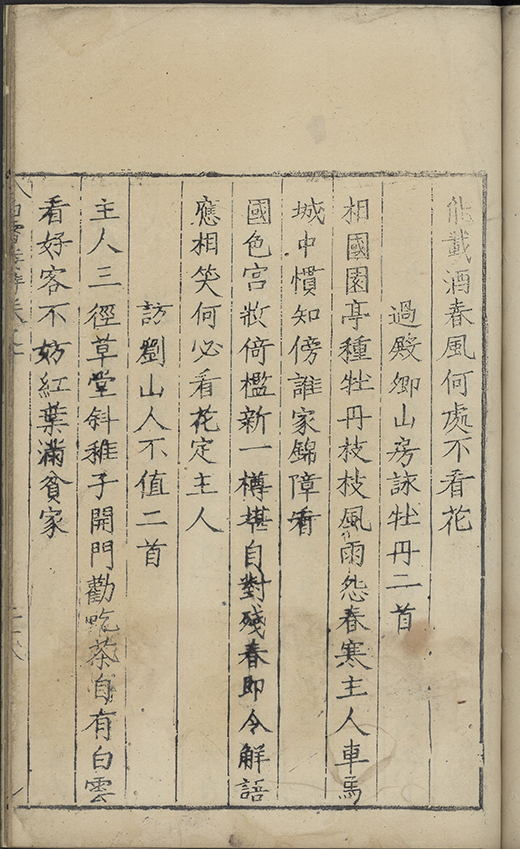 能載酒春風何處不看花
過殿卿山房詠牡丹二首
相國園亭種牡丹枝枝風雨怨春寒主人車馬
城中慣知傍誰家錦障看
國色宮妝倚檻新一樽堪自對殘春即令解語
應相笑何必看花定主人
訪劉山人不值二首
主人三徑草堂斜稚子開門勸吃茶自有白雲
看好客不妨紅葉滿貧家